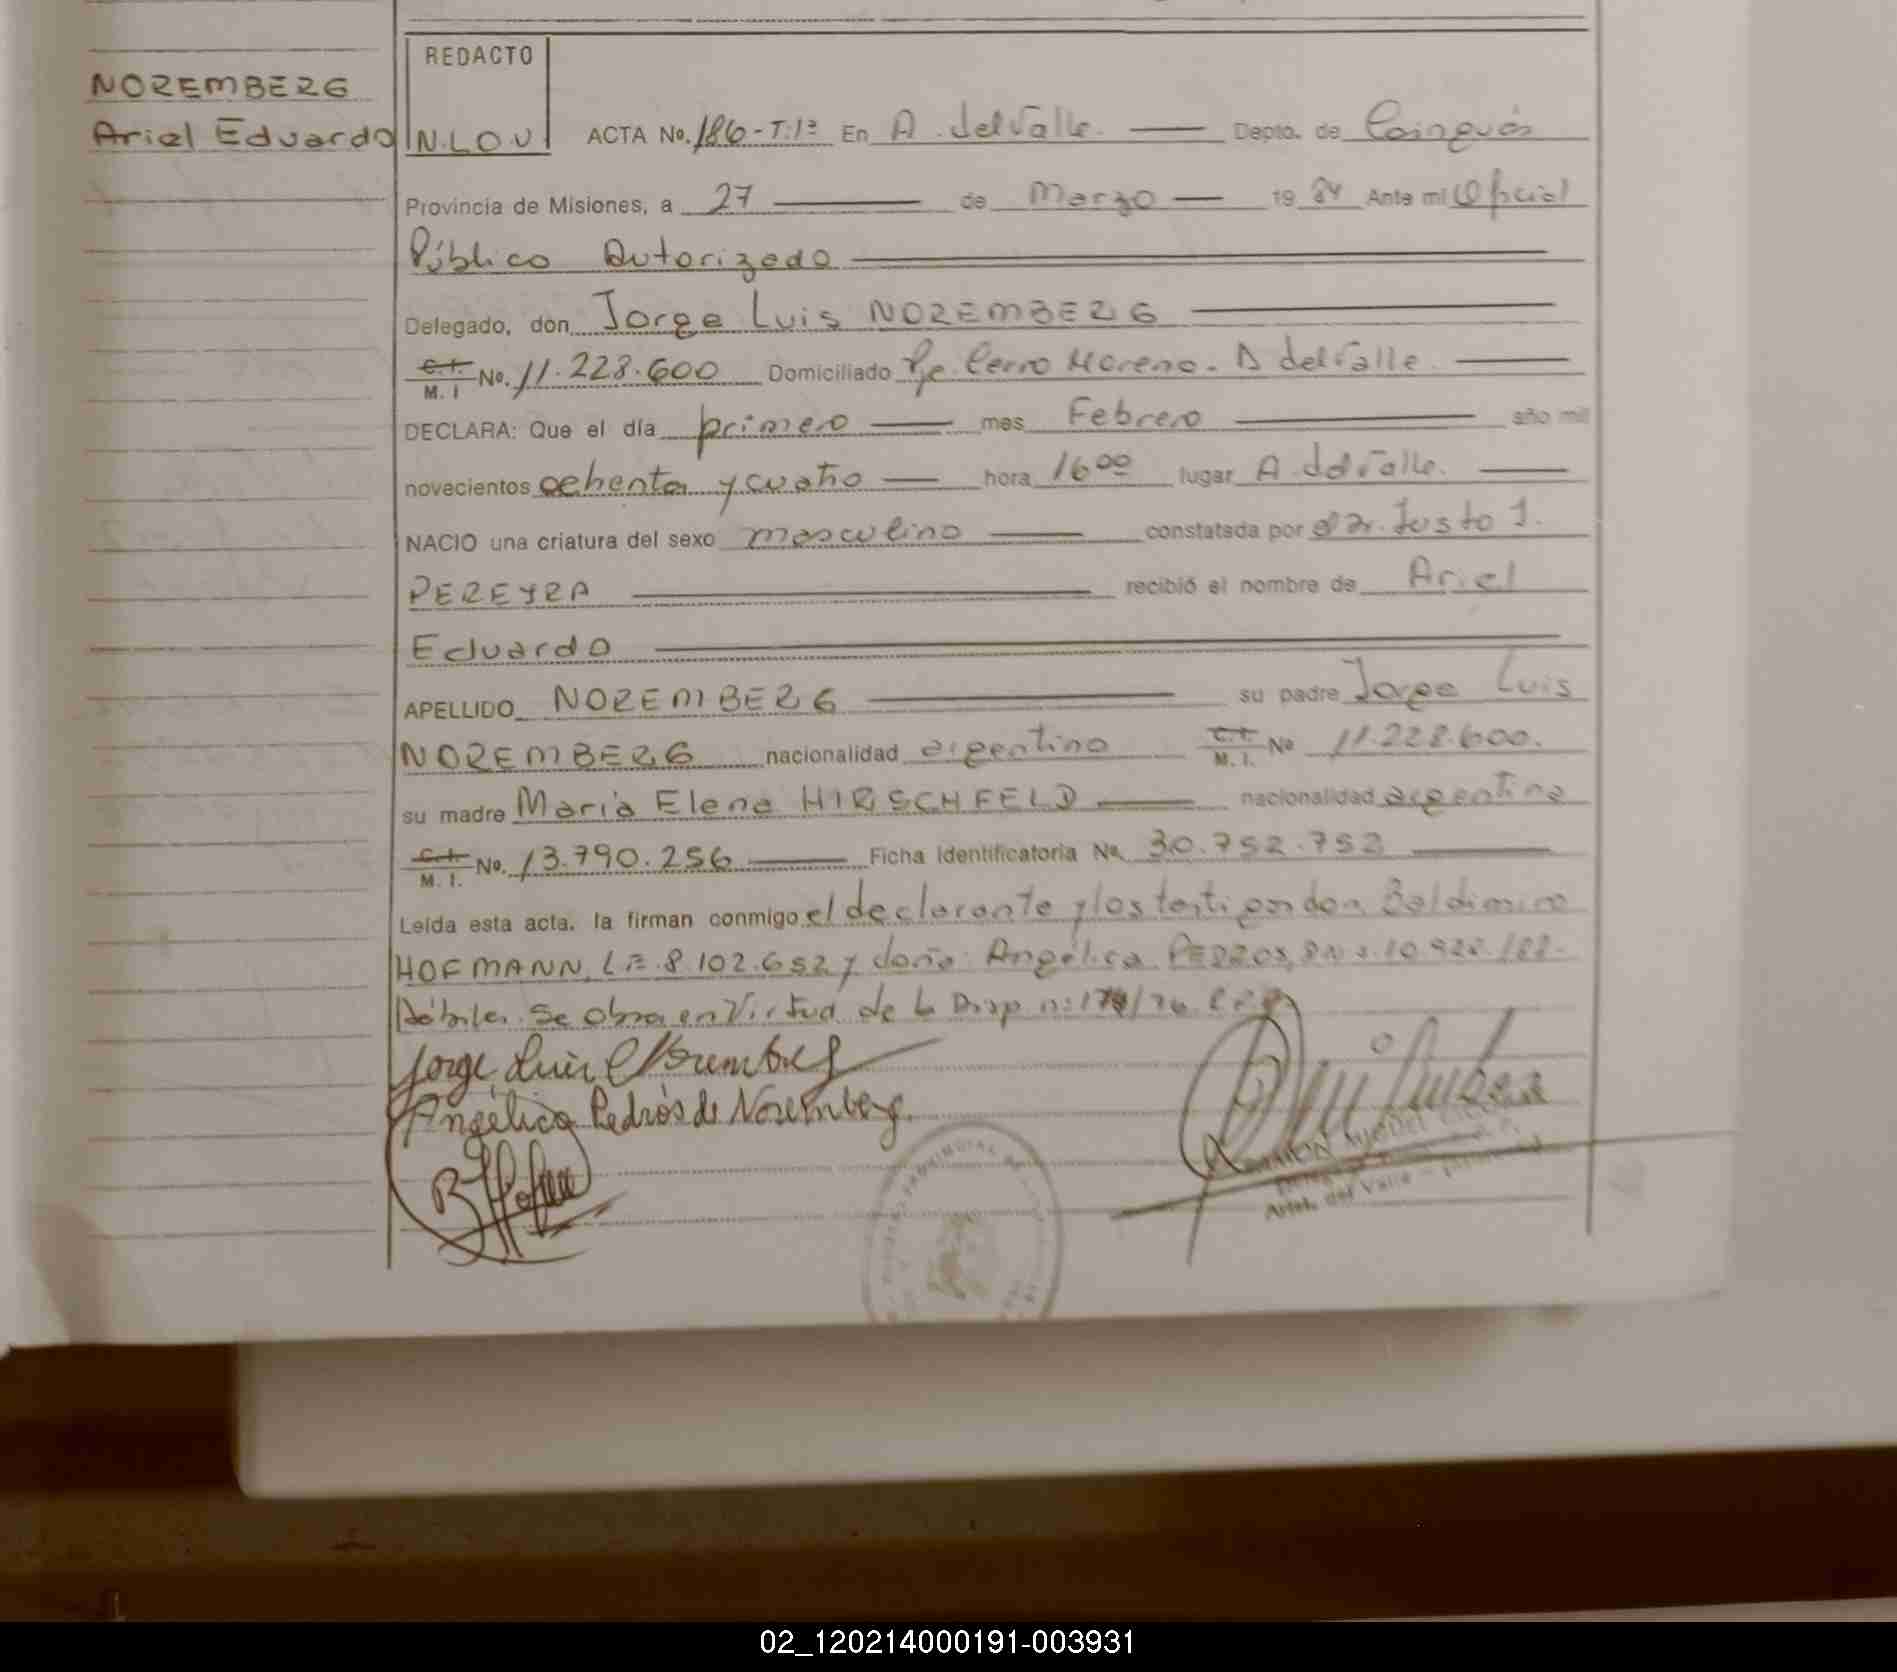 NOREMBERG
Ariel Eduardo
REDACTO
N.L.O.U.
ACTA No. 186-T:1º En A. del Valle. Depto. de Cainguás
Provincia de Misiones, a 27 de Marzo 19 84 Ante mi Oficial
Público Autorizado
Delegado, don Jorge Luis NOREMBERG
C.I. M. I No. 11.228.600 Domiciliado Pje. Cerro Moreno. A del Valle.
DECLARA: Que el día primero mes Febrero año mil
novecientos ochenta y cuatro hora 16⁰⁰ lugar A. del Valle.
NACIO una criatura del sexo masculino constatada por el Dr. Justo J.
PEREYRA recibió el nombre de Ariel
Eduardo
APELLIDO NOREMBERG su padre Jorge Luis
NOREMBERG nacionalidad argentino C.I. M. I. No 11.228.600.
su madre María Elena HIRSCHFELD nacionalidad argentina
C.I. M. I. No. 13.790.256 Ficha Identificatoria No. 30.752.752
Leída esta acta, la firman conmigo el declarante y los testigos don Baldimiro
HOFMANN, LE. 8.102.652 y doña: Angélica PEDROS, 10.928.188.
Hábiles. Se obra en Virtud de la Disp. n:
Jorge Luis Noremberg
Angélica Pedrós de Noremberg.
RAMON MIGUEL
Arist. del Valle -
PROVINCIAL
02_120214000191-003931